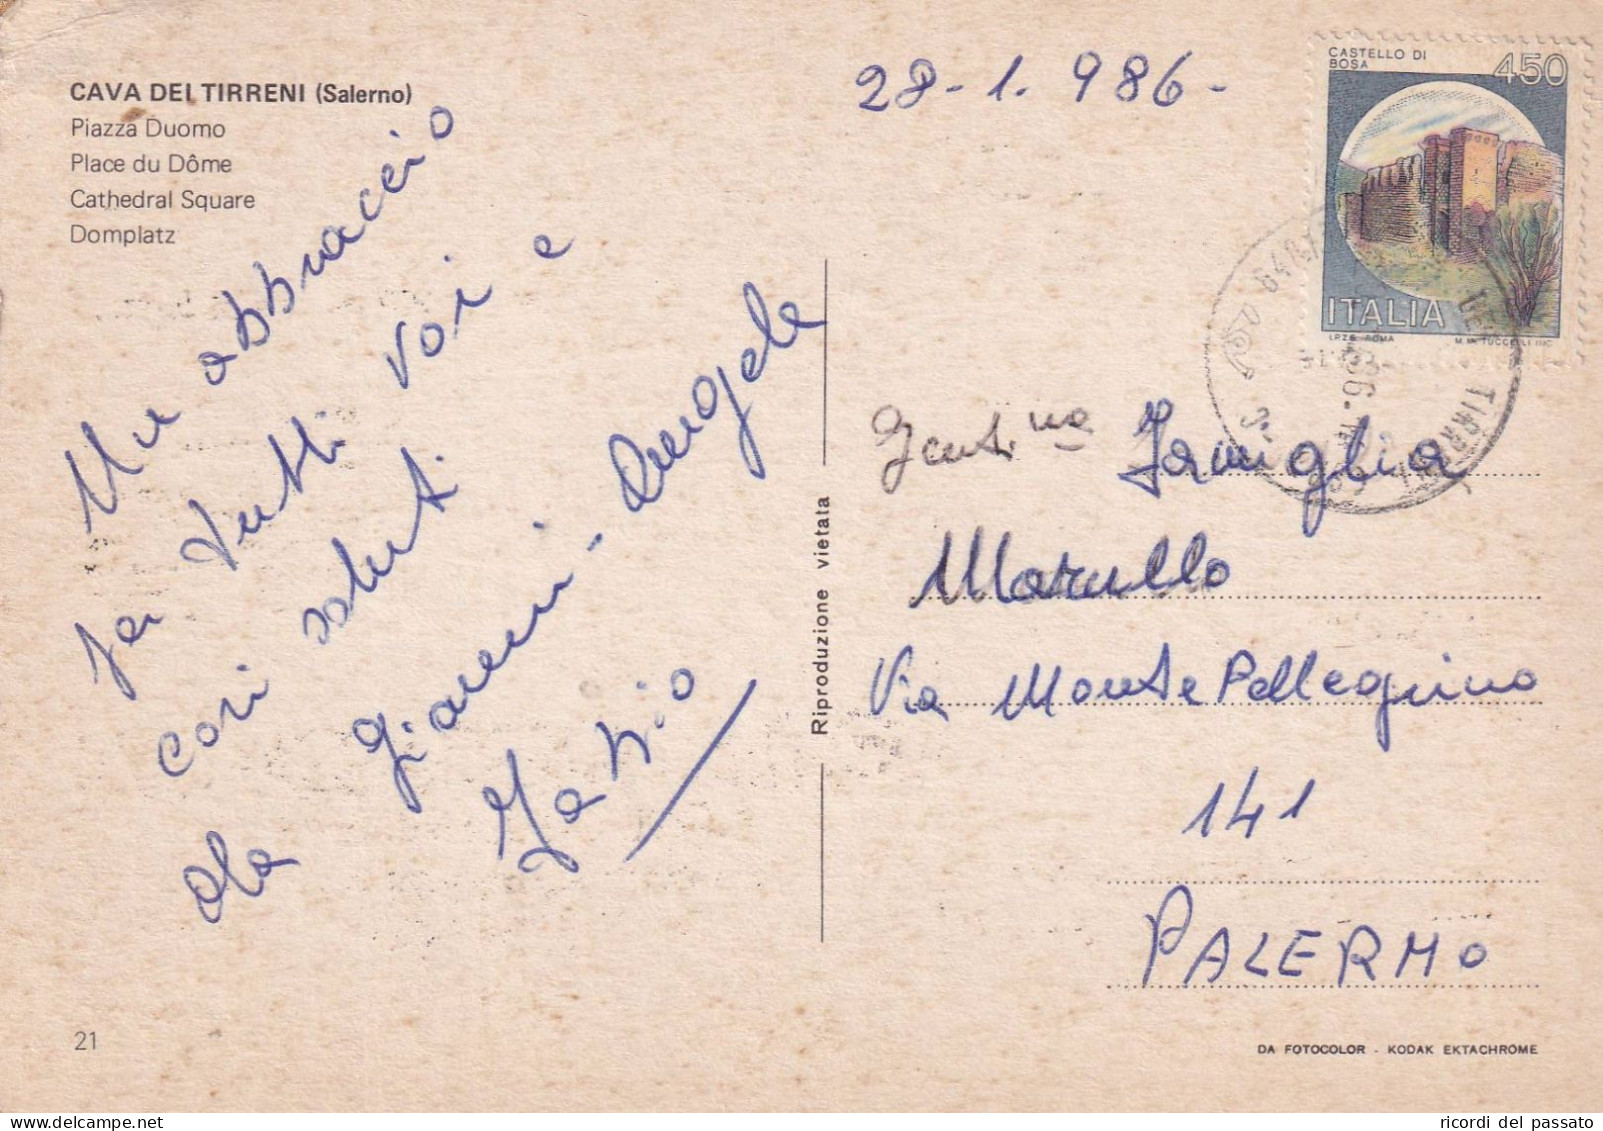 CAVA DEI TIRRENI (Salerno)
Piazza Duomo
Place du Dôme
Cathedral Square
Domplatz
28-1.986-
CASTELLO DI
BOSA
450
ITALIA
I.P.Z.S. ROMA
Un abbraccio
per tutti voi e
cari saluti
da
Gianni - Angela
Fabio
Riproduzione vietata
Gent.ma Famiglia
Marullo
Via Monte Pellegrino
141
PALERMO
TIRRENI
21
DA FOTOCOLOR - KODAK EKTACHROME
ricordi del passato